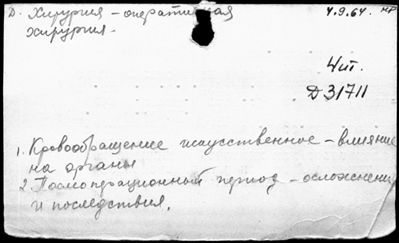 Д. Хирургия - оперативная 4.9.64. нр
хирургия.
4ит.
Д31711
1. Кровообращение искусственное - влияние
на органы
2. Послеоперационный период - осложнени
и последствия.